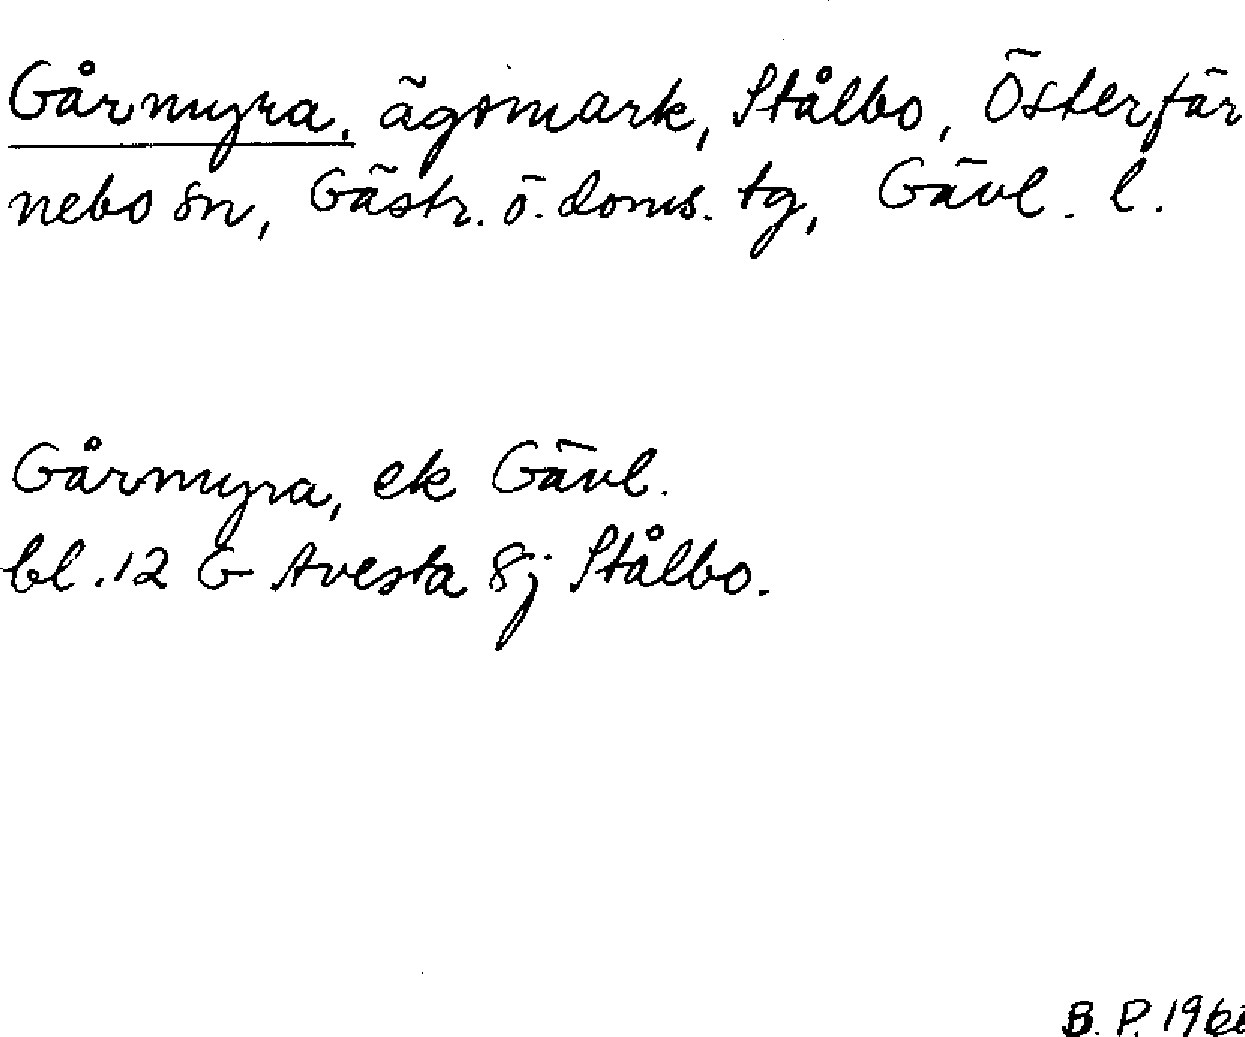 Gårmyra, ägomark, Stålbo, Österfär
nebo sn, Gästr. ö. doms. tg, Gävl. l.
Gårmyra, ek Gävl.
bl. 12 G Avesta 8j Stålbo.
B. P.